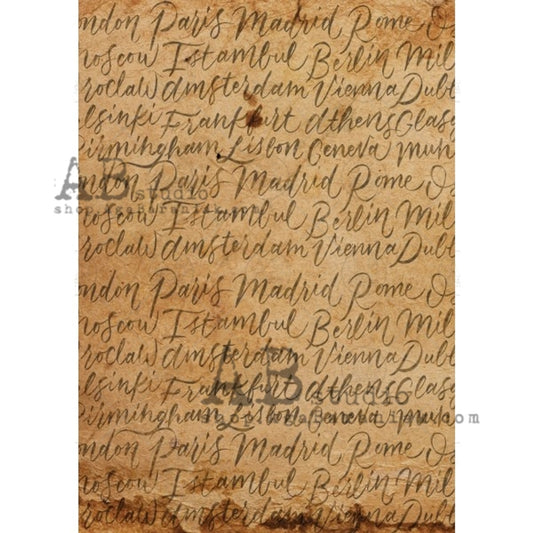 ondon Paris Madrid Rome Os
moscow Istambul Berlin Mil
roclaw amsterdam Vienna Dubl
elsinki Frankfurt Athens Glasg
Birmingham Lisbon Geneva Mun
AB studio
ondon Paris Madrid Rome Os
moscow Istambul Berlin Mil
roclaw amsterdam Vienna Dubl
ondon Paris Madrid Rome Os
moscow Istambul Berlin Mil
roclaw amsterdam Vienna Dubl
AB studio
elsinki Frankfurt Athens Glasg
Birmingham Lisbon Geneva Mun
ondon Paris Madrid Rome Os
moscow Istambul Berlin Mil
roclaw amsterdam Vienna Dubl